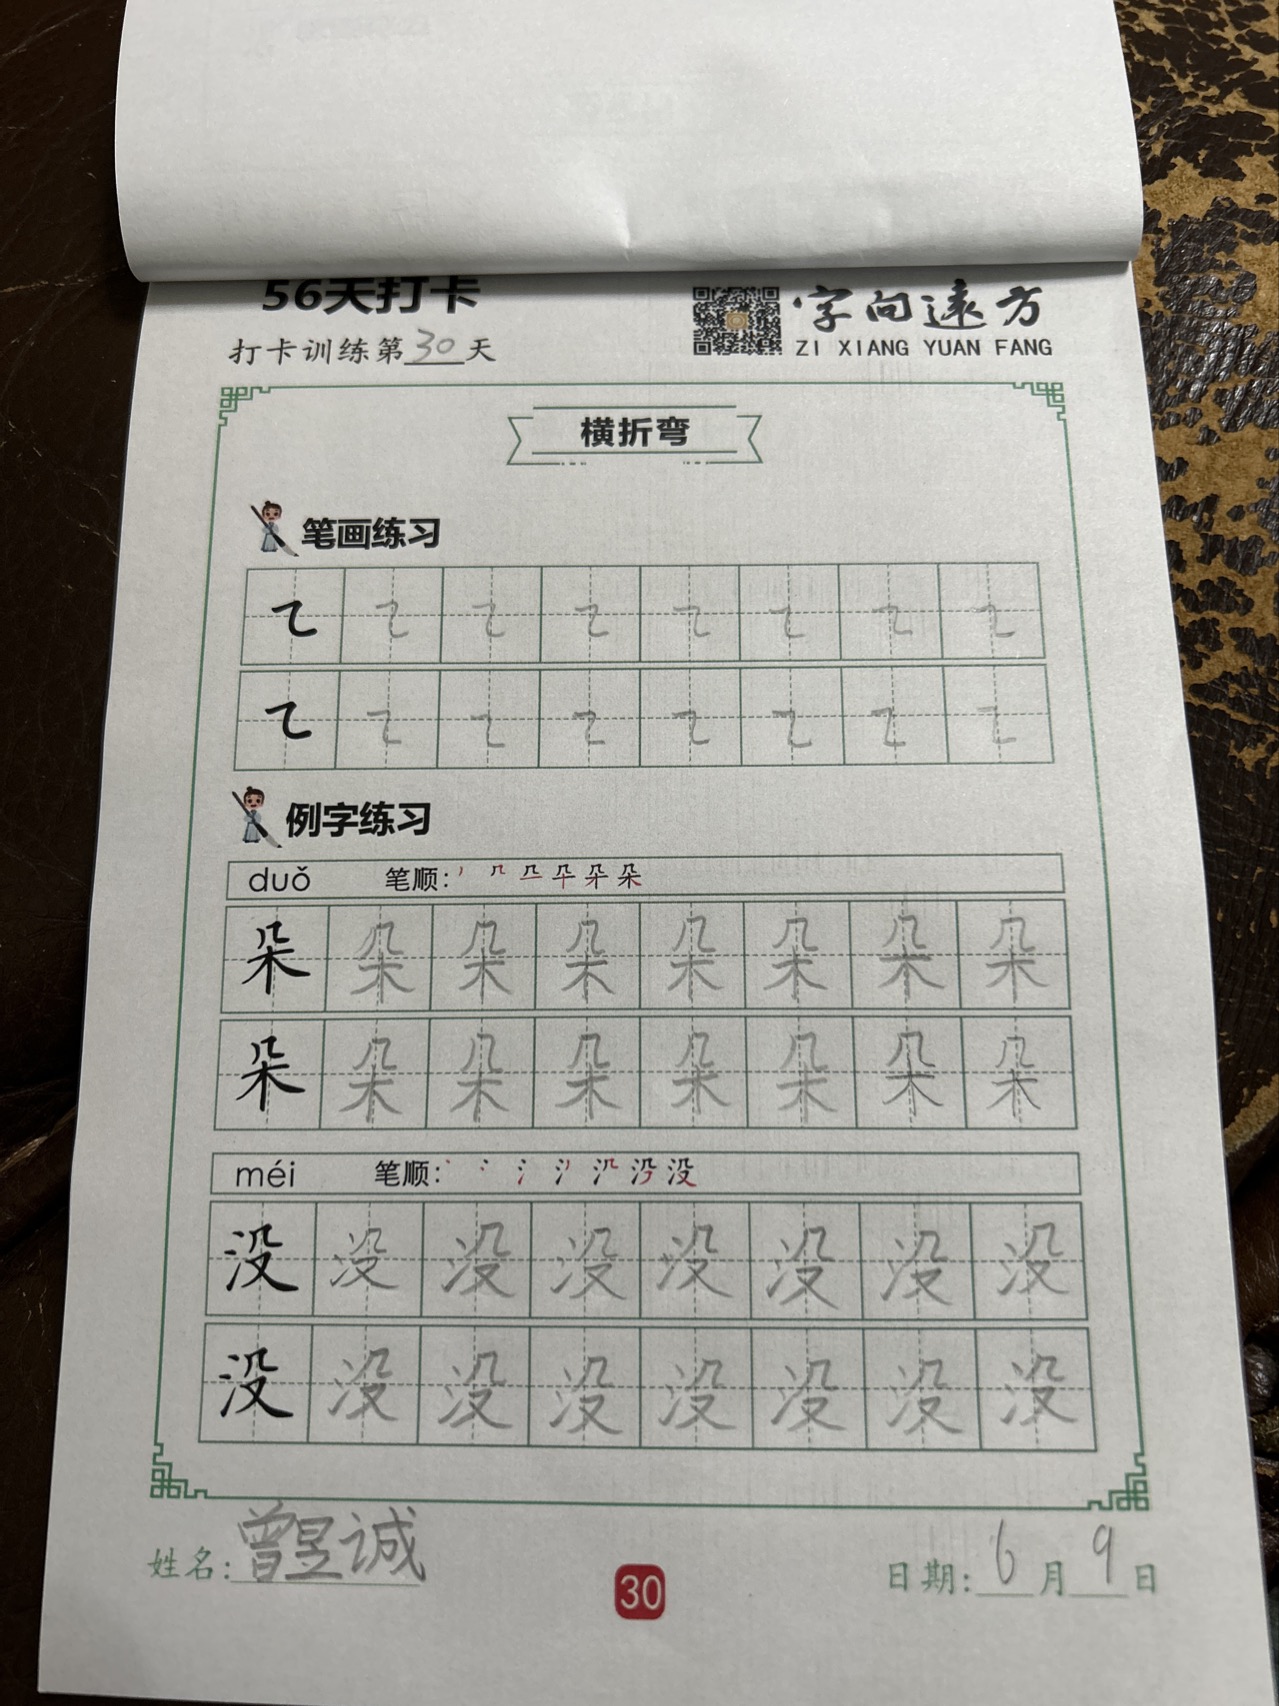 56天打卡
字向远方
打卡训练第30天
ZI XIANG YUAN FANG
横折弯
笔画练习
例字练习
duǒ 笔顺:
朵 朵 朵 朵 朵 朵 朵 朵
朵 朵 朵 朵 朵 朵 朵 朵
méi 笔顺:
没 没 没 没 没 没 没 没
没 没 没 没 没 没 没 没
姓名:曾昱诚
30
日期:6月9日